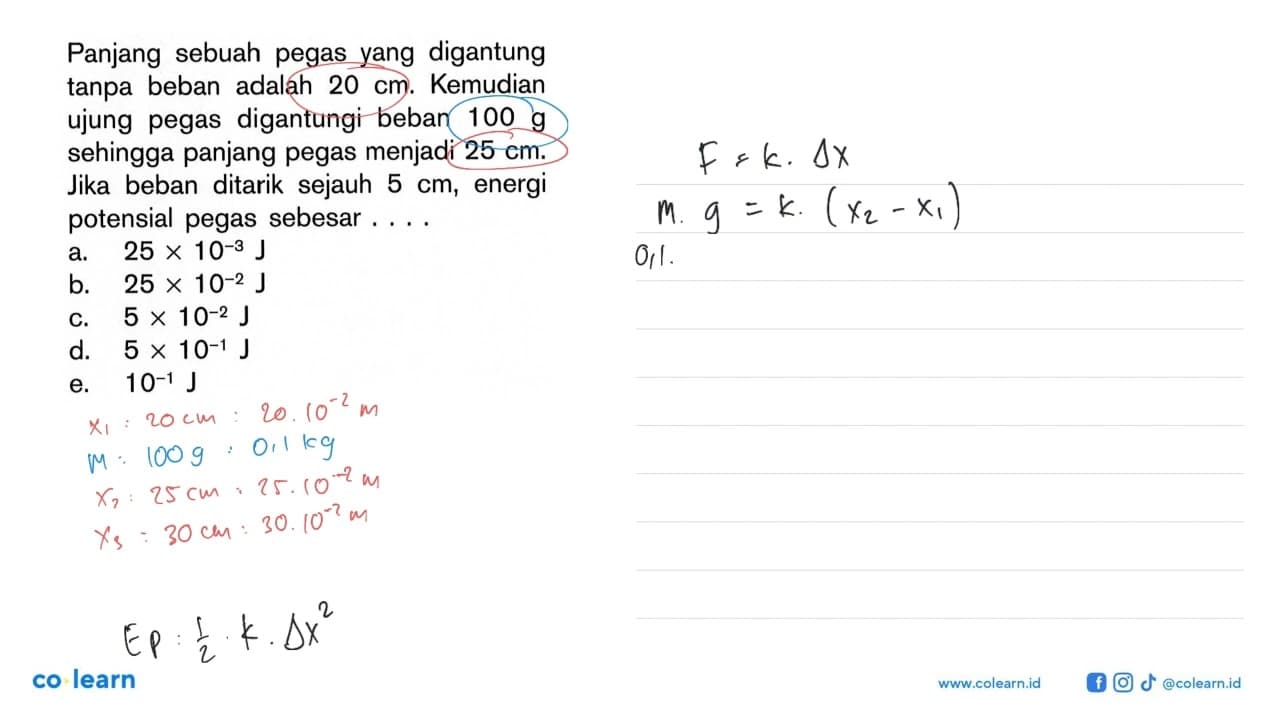 Panjang sebuah pegas yang digantung
tanpa beban adalah 20 cm. Kemudian
ujung pegas digantungi beban 100 g
sehingga panjang pegas menjadi 25 cm.
Jika beban ditarik sejauh 5 cm, energi
potensial pegas sebesar . . . .
a. 25 × 10⁻³ J
b. 25 × 10⁻² J
c. 5 × 10⁻² J
d. 5 × 10⁻¹ J
e. 10⁻¹ J
x₁ : 20 cm : 20.10⁻² m
m : 100 g : 0,1 kg
x₂ : 25 cm : 25.10⁻² m
x₃ : 30 cm : 30.10⁻² m
Ep : 1/2 . k . Δx²
F = k. Δx
m. g = k. (x₂ - x₁)
0,1.
co learn
www.colearn.id
@colearn.id